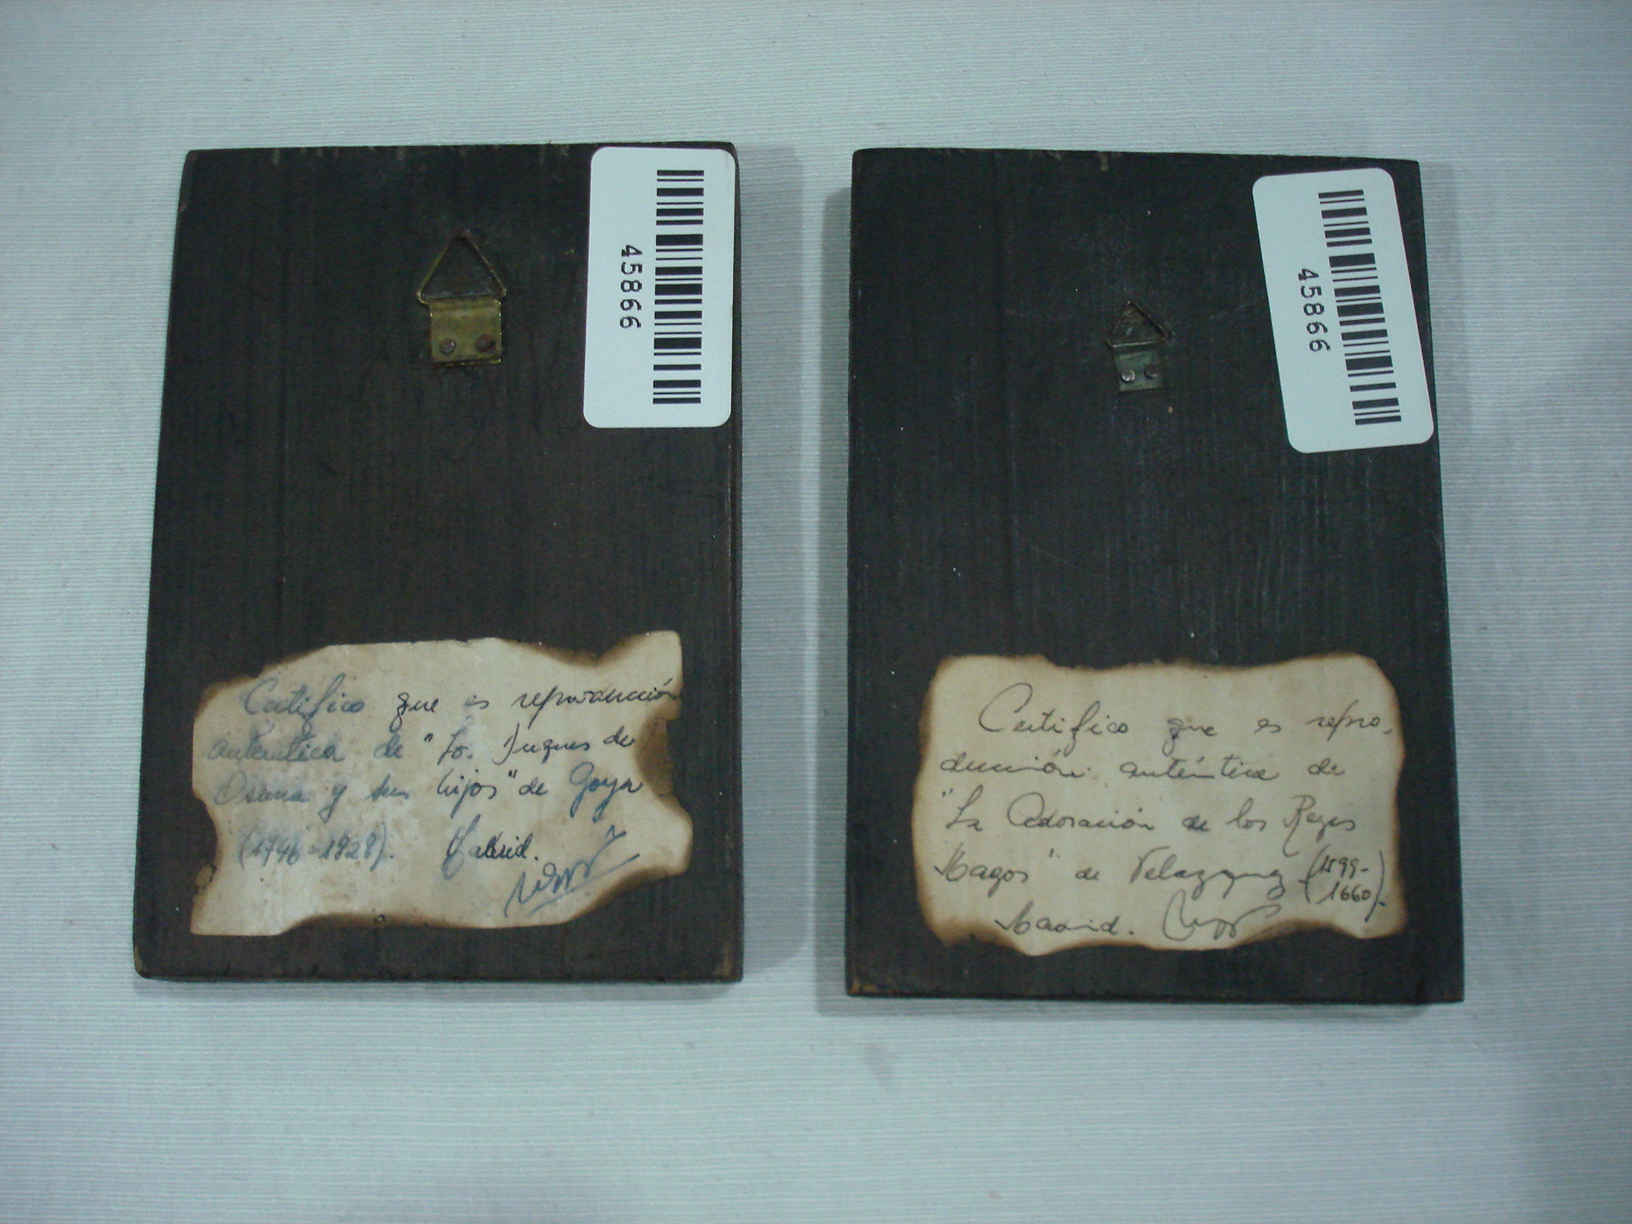 45866
Certifico que es reproducción
autentica de "Los Duques de
Osuna y sus hijos" de Goya
(1746-1828). Madrid.
45866
Certifico que es repro-
ducción auténtica de
"La Adoración de los Reyes
Magos" de Velazquez (1599-
1660).
Madrid.